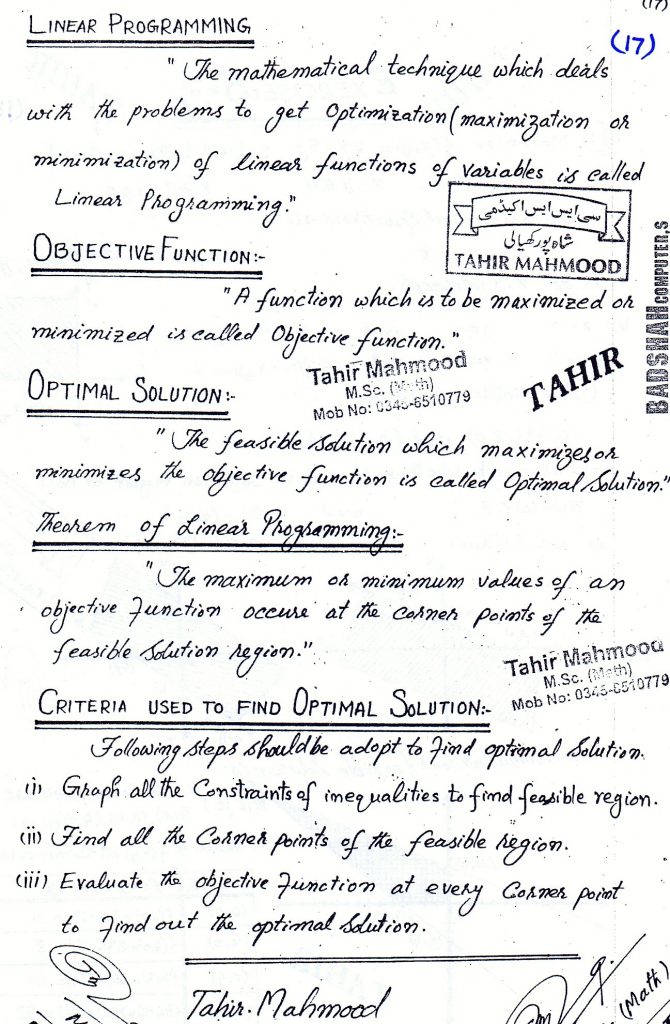 (17)
(17)
LINEAR PROGRAMMING
" The mathematical technique which deals
with the problems to get Optimization (maximization or
minimization) of linear functions of variables is called
Linear Programming."
سی ایس ایس اکیڈمی
شاہ پور کھیالی
TAHIR MAHMOOD
OBJECTIVE FUNCTION:-
"A function which is to be maximized or
minimized is called Objective function."
BADSHAH COMPUTER,S
Tahir Mahmood
M.Sc. (Math)
Mob No: 0345-6510779
TAHIR
OPTIMAL SOLUTION:-
"The feasible solution which maximizes or
minimizes the objective function is called Optimal Solution."
Theorem of Linear Programming:-
"The maximum or minimum values of an
objective Function occure at the corner points of the
feasible solution region."
Tahir Mahmood
M.Sc. (Math)
Mob No: 0345-6510779
CRITERIA USED TO FIND OPTIMAL SOLUTION:-
Following steps should be adopt to Find optimal Solution.
(i) Graph all the Constraints of inequalities to find feasible region.
(ii) Find all the Corner points of the feasible region.
(iii) Evaluate the objective Function at every Corner point
to Find out the optimal Solution.
Tahir. Mahmood
(Math)